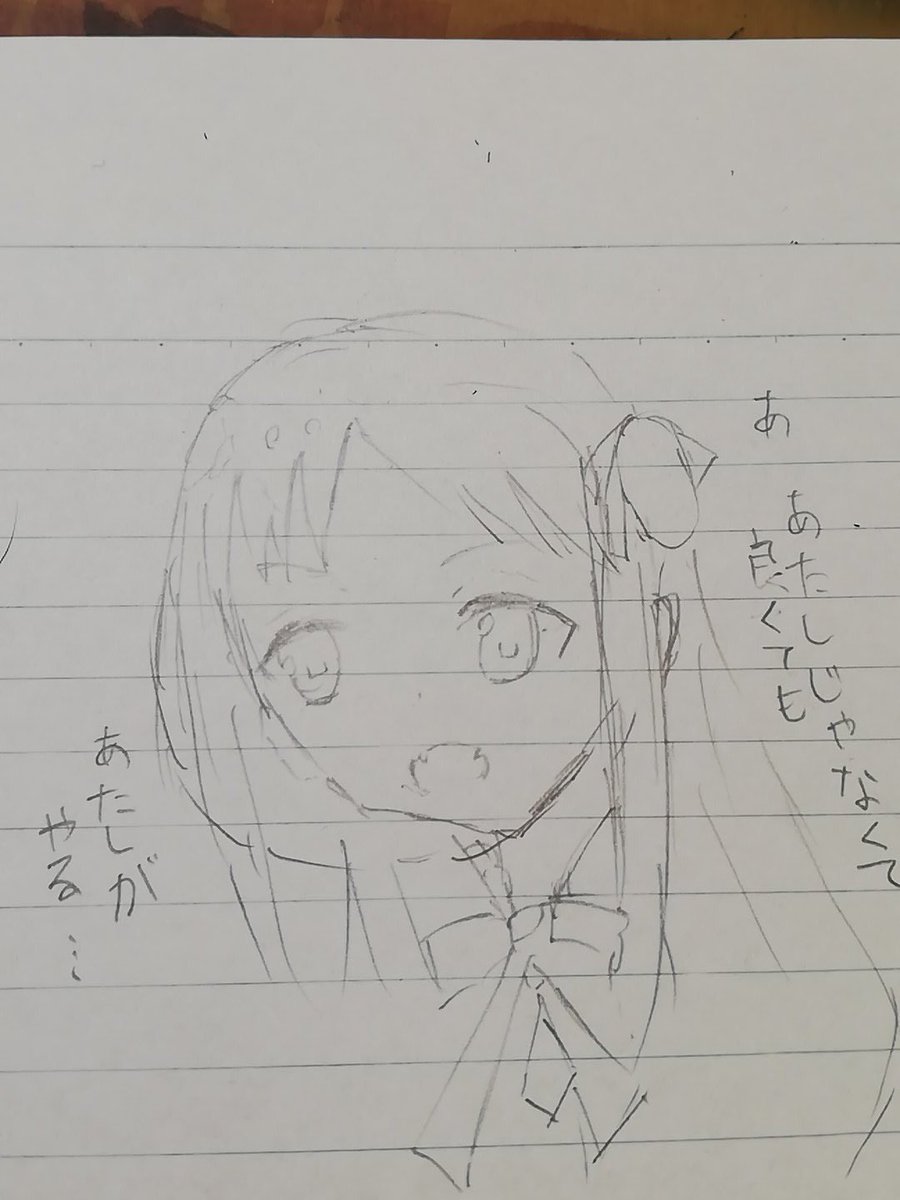 あ
あたしじゃなくて
良くても
あたしが
やる…